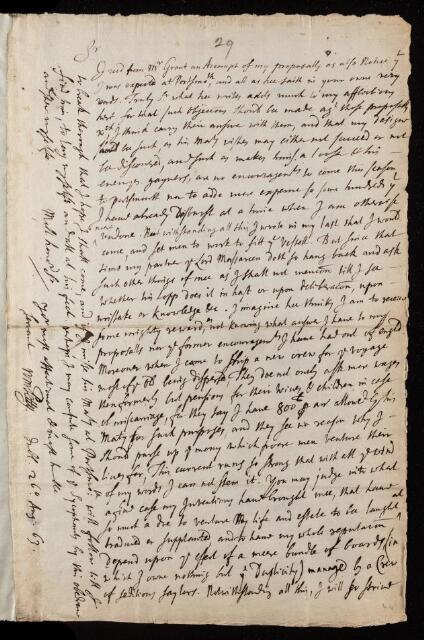 29
Sr
I recd from Mr Grant an Accompt of my proposalls as also Notice yt
I was expected at Portsmo and all as hee saith in your owne very
words. Truly Sr what hee writes adds much to my affliction
here for that such objections should be made agt those proposalls
wch I think carry their answer with them, and that my designe
should be such as his Maty wishes may either not succeed or not
be discovered and such as makes himselfe a looser & his
enemys gayners, are no encouragemts to come this season
to Portsmouth nor to adde more expence to some hundreds yt
I have already disburst at a time when I am otherwise
neere undone. Notwithstanding all this I wrote in my last that I would
come, and set men to work to fitt ye Vessell. But since that
time my partner ye Lord Massareen doth so hang back and ask
such other things of mee as I shall not mention till I see
whether his Lopp does it in hast or upon deliberation, upon
mistake or knowledge &c. I imagine hee thinks I am to receive
some mighty reward, not knowing what answer I have to my
proposalls nor ye former encouragemts I have had out of Engld
Moreover when I came to shipp a new crew for ye voyage
most of ye old being dispersed They doe not only ask more wages
then formerly but pensions for their wives & children in case
of miscarriage, for they say I have 800£ p an allowed by his
Maty for such purposes, and they see no reason why I
should purse up ye mony which poore men venture their
lives for, This current runs so strong that with all ye wind
of my words, I can not stem it. You may judge into what
a fine case my Inventions have brought mee, that have
so much a doe to venture my life and estate to be laught at
traduced or supplanted and to have my whole reputation
depend upon ye used of a meere bundle of boards (in
which I owne nothing but ye Duplicity) managed by a crew
of seditious saylers. Notwithstanding all this, I will so strive
to break through that I hope I shall come, and if I misse his Maty at Portsmo will follow till I
find him, to lay myselfe and all at his feet
Sr Your most affectionate & most humble
servt Wm Petty